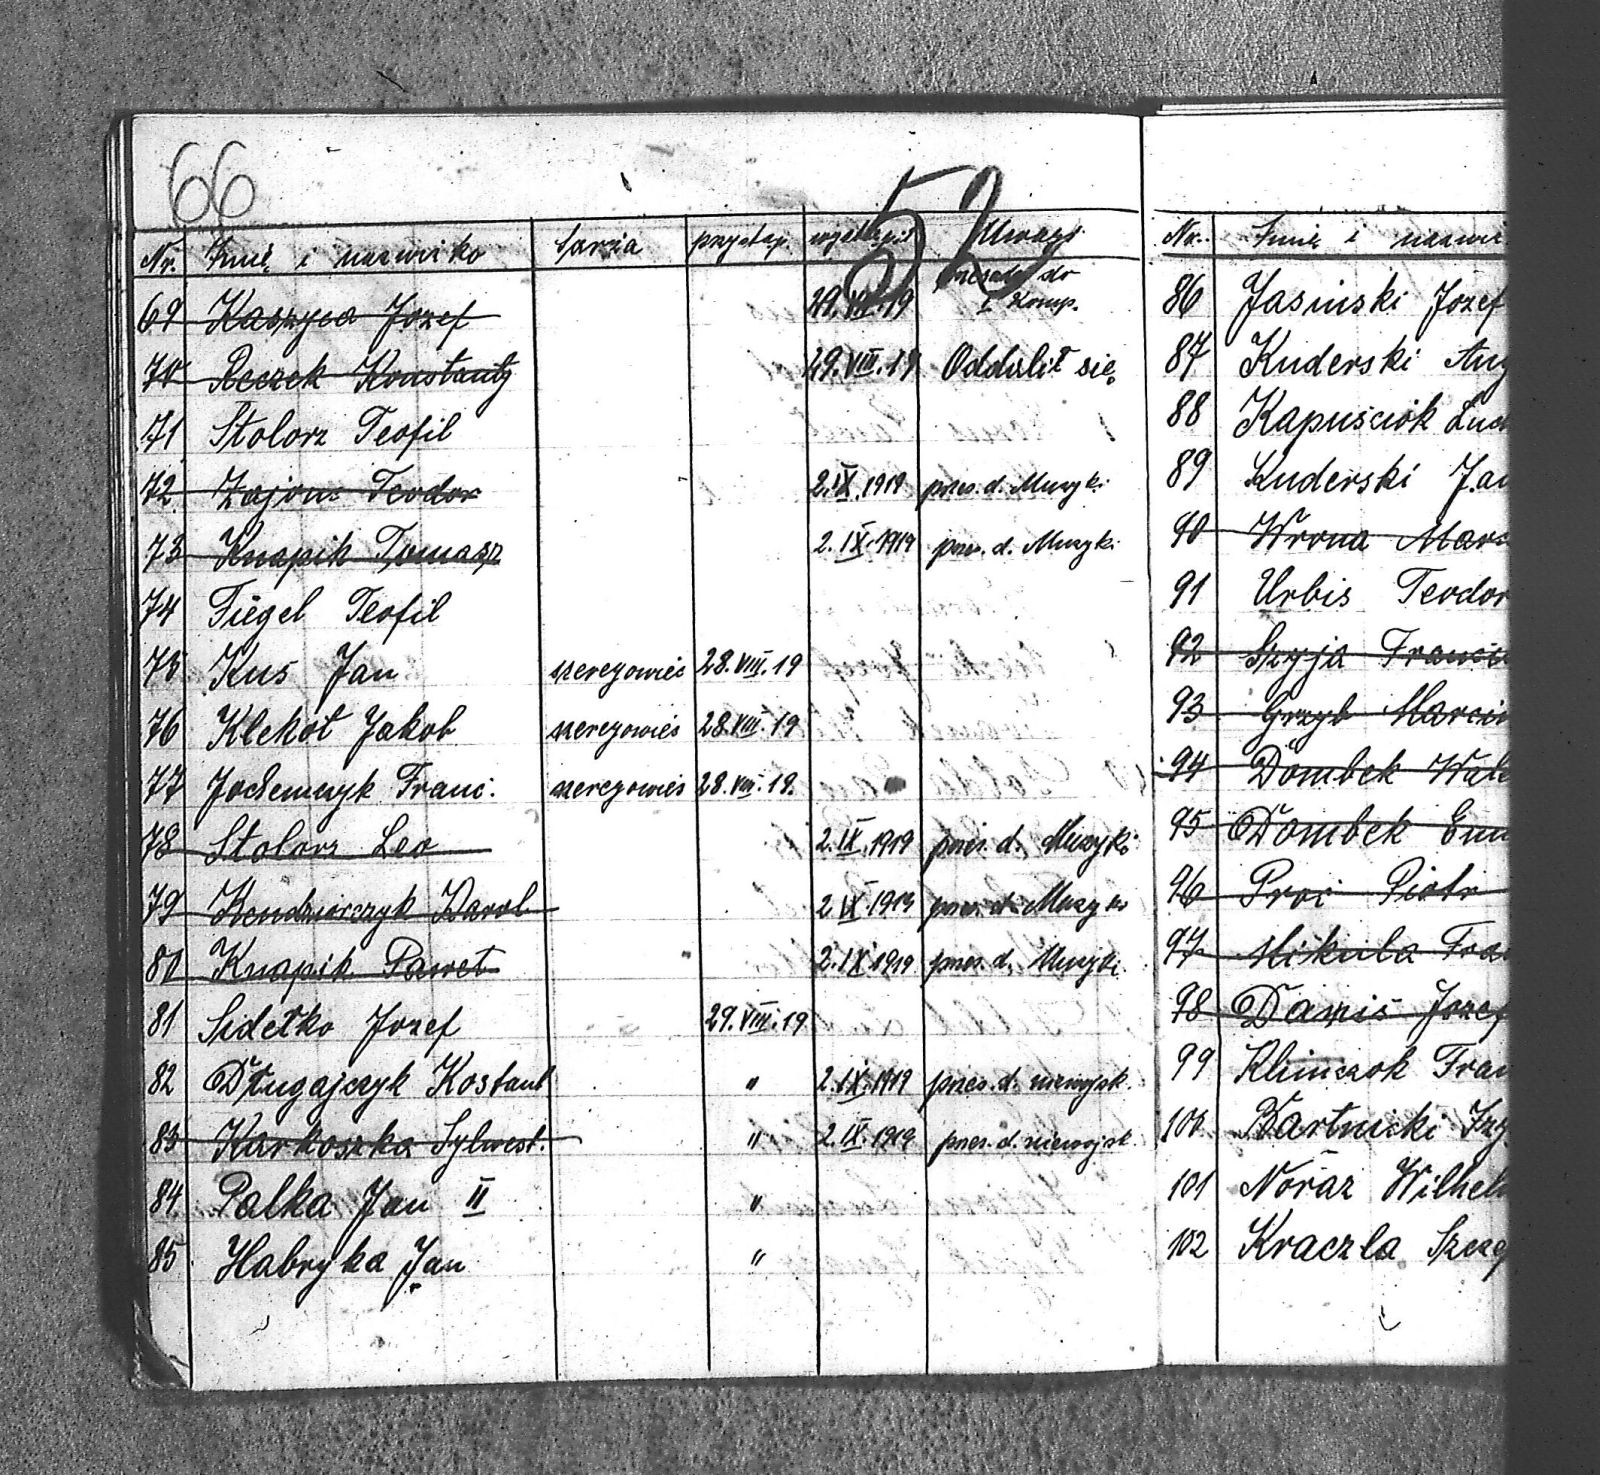 66
52
Nr. Imię i nazwisko szarża przystąp. wystąpił Uwagi
69 Kaszyca Jozef 29.VIII.19 do I Komp.
70 Reczek Konstanty 29.VIII.19 Oddalił się.
71 Stolorz Teofil
72 Zajonc Teodor 2.IX.1919 przes. d. Muzyki
73 Knapik Tomasz 2.IX.1919 przes. d. Muzyki
74 Fiegel Teofil
75 Kuś Jan szeregowiec 28.VIII.19
76 Klekot Jakob szeregowiec 28.VIII.19
77 Jochemczyk Franc. szeregowiec 28.VIII.19.
78 Stolorz Leo 2.IX.1919 przes. d. Muzyki
79 Kendziorczyk Karol 2 IX 1919 przes. d. Muzyki
80 Knapik Paweł 2.IX 1919 przes. d. Muzyki
81 Sidełko Jozef 29.VIII.19
82 Długajczyk Kostant " 2.IX.1919 przes. d. niewojsk.
83 Karkoszka Sylwest. " 2.IX.1919 przes. d. niewojsk
84 Palka Jan II "
85 Habryka Jan "
Nr. Imię i nazwi
86 Jasinski Jozef
87 Kuderski Aug
88 Kapuściok Lud
89 Kuderski Jan
90 Wrona Marc
91 Urbis Teodor
92 Szyja Franci
93 Grzyb Marcin
94 Dombek Wal
95 Dombek Em
96 Proc Piotr
97 Mikula Fra
98 Jozef
99 Klimczok Fran
100 Bartnicki
101 Noras Wilhel
102 Kraczla Szcze